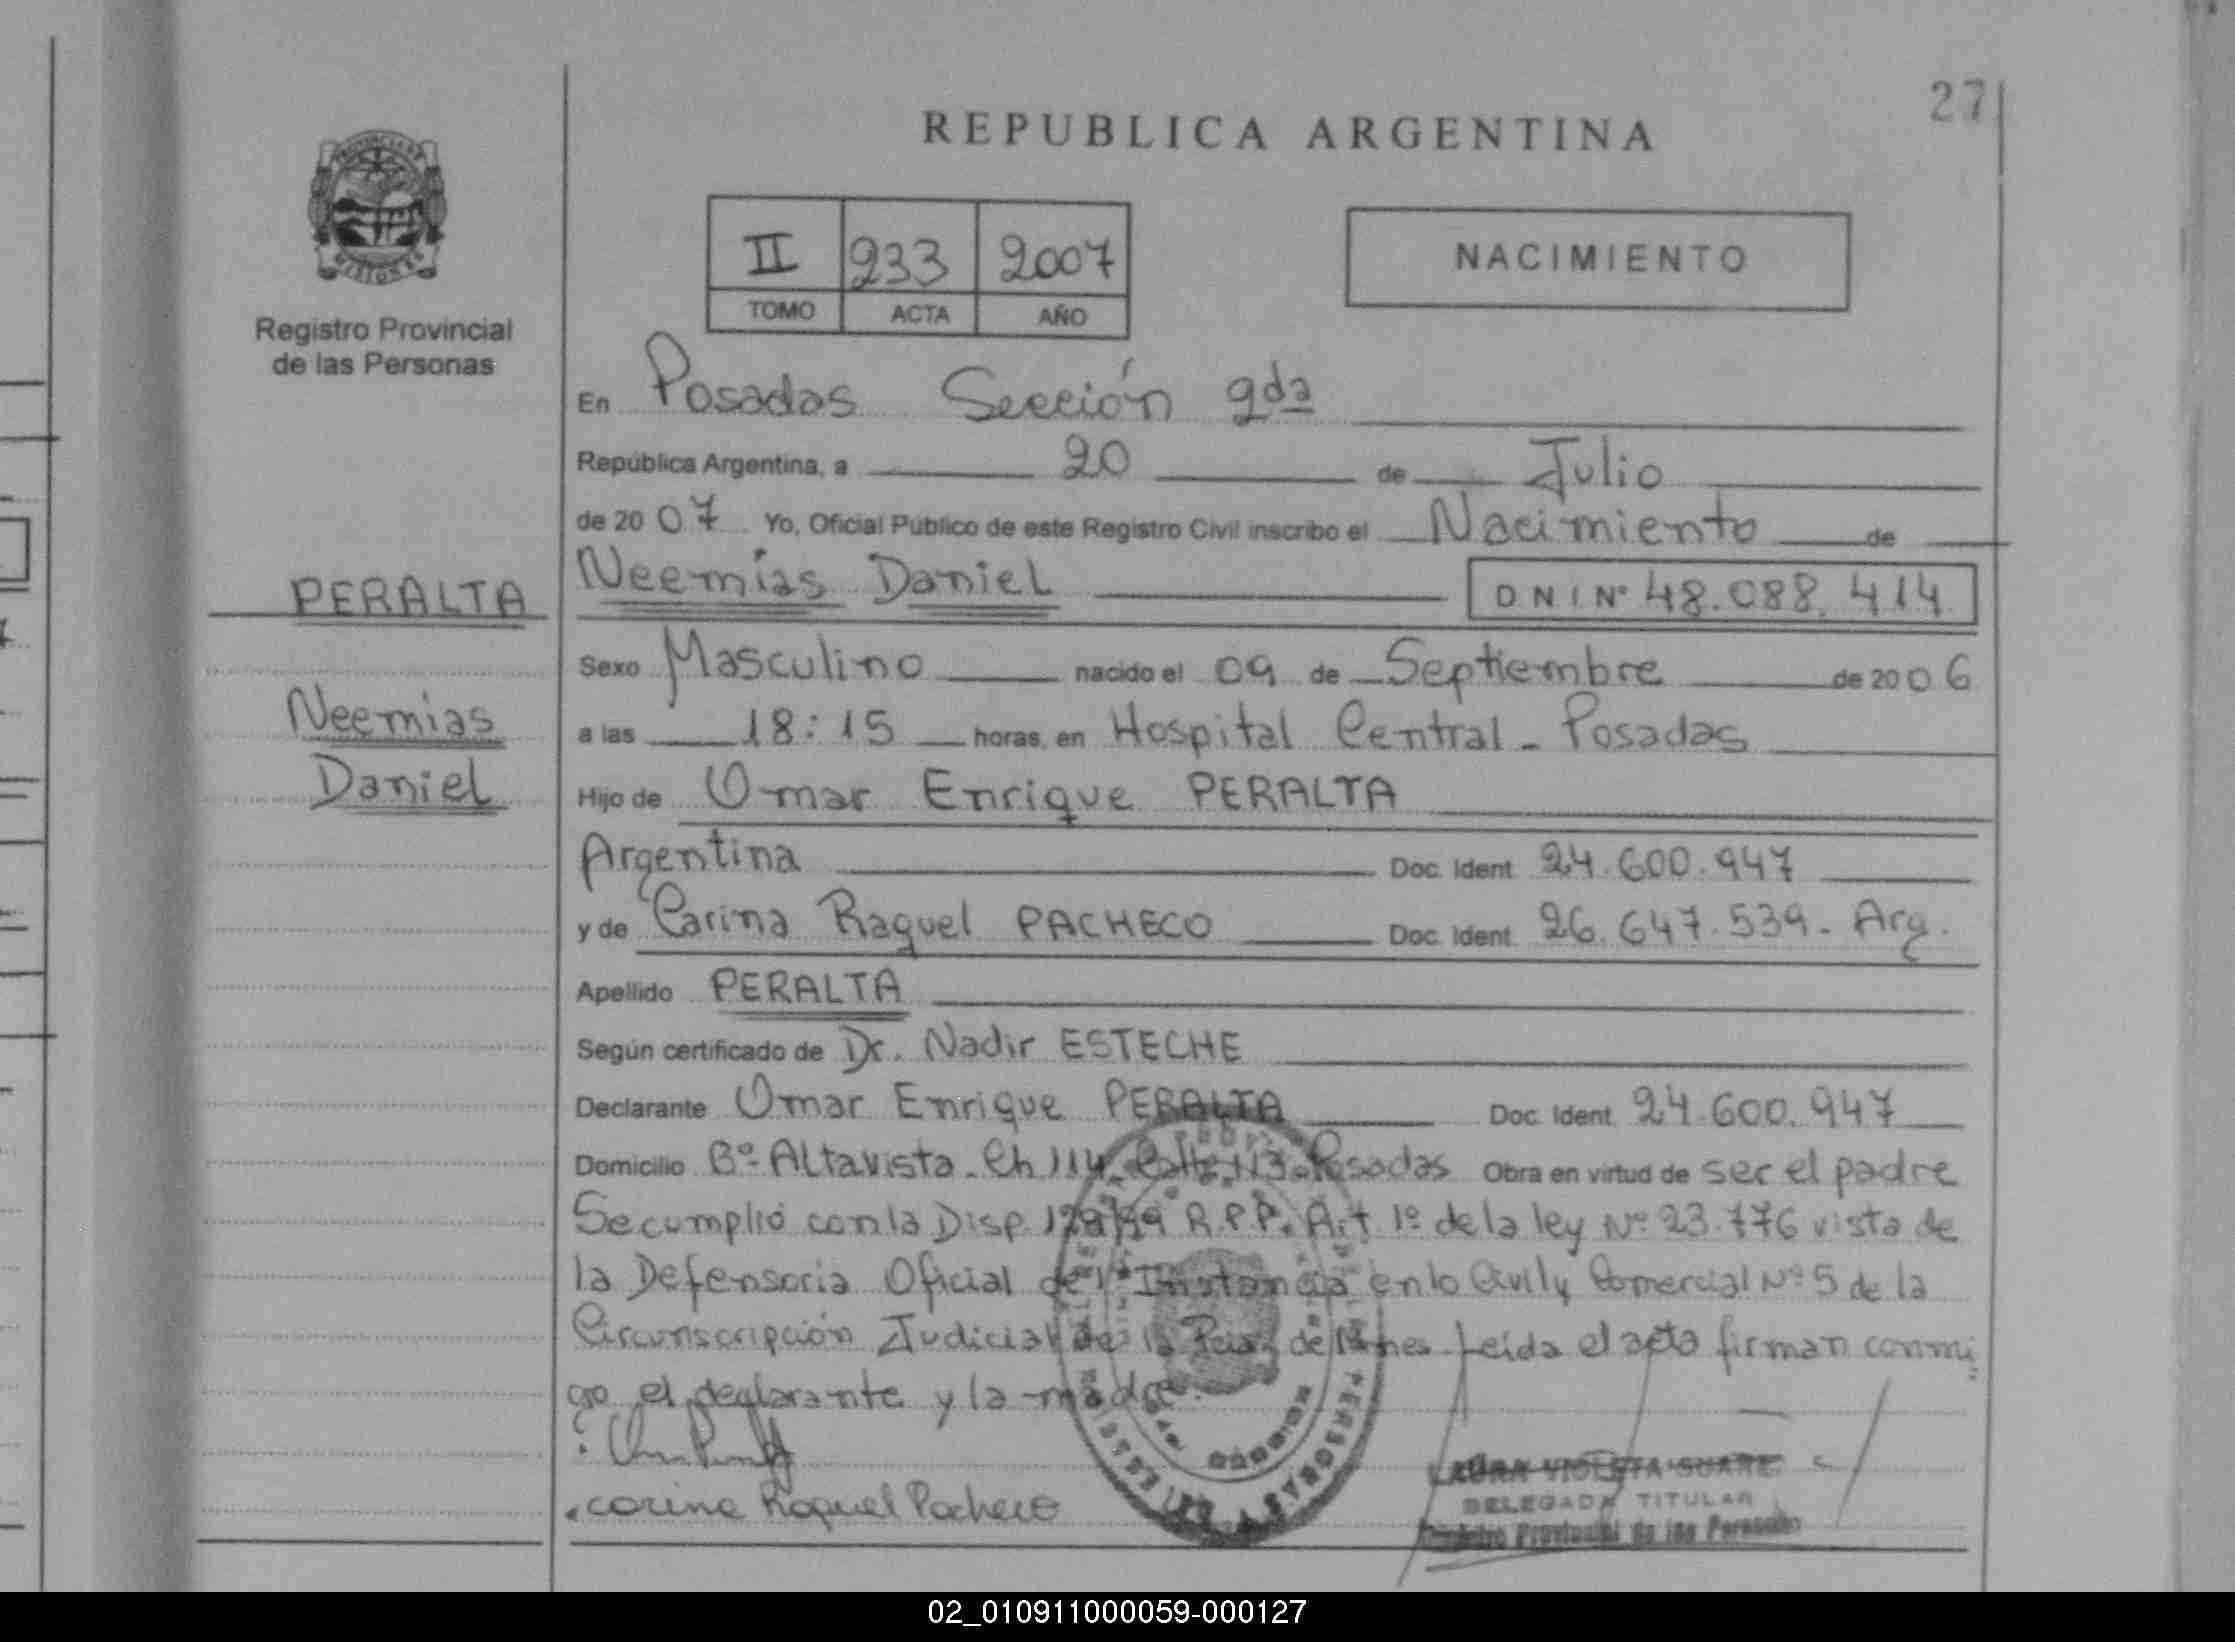 27
REPUBLICA ARGENTINA
PROVINCIA DE
MISIONES
Registro Provincial
de las Personas
II 233 2007
TOMO ACTA AÑO
NACIMIENTO
En Posadas Sección 2da
República Argentina, a 20 de Julio
de 2007 Yo, Oficial Público de este Registro Civil inscribo el Nacimiento de
PERALTA
Neemias
Daniel
Neemías Daniel D N I Nº 48.088.414
Sexo Masculino nacido el 09 de Septiembre de 2006
a las 18:15 horas, en Hospital Central - Posadas
Hijo de Omar Enrique PERALTA
Argentina Doc. Ident 24.600.947
y de Carina Raquel PACHECO Doc. Ident 26.647.539 - Arg.
Apellido PERALTA
Según certificado de Dr. Nadir ESTECHE
Declarante Omar Enrique PERALTA Doc. Ident. 24.600.947
Domicilio Bº Altavista - Ch 114 Calle 113 - Posadas Obra en virtud de ser el padre
Se cumplió con la Disp. R.P.P. Art 1º de la ley Nº 23.776 vista de
la Defensoria Oficial de 1ª Instancia en lo Civil y Comercial Nº 5 de la
Circunscripción Judicial de la Pcia de Mnes Leida el acta firman conmi
go el declarante y la madre.
corina Raquel Pacheco
PERSONAS
LAURA VIOLETA SUARE
DELEGADA TITULAR
Registro Provincial de las Personas
02_010911000059-000127